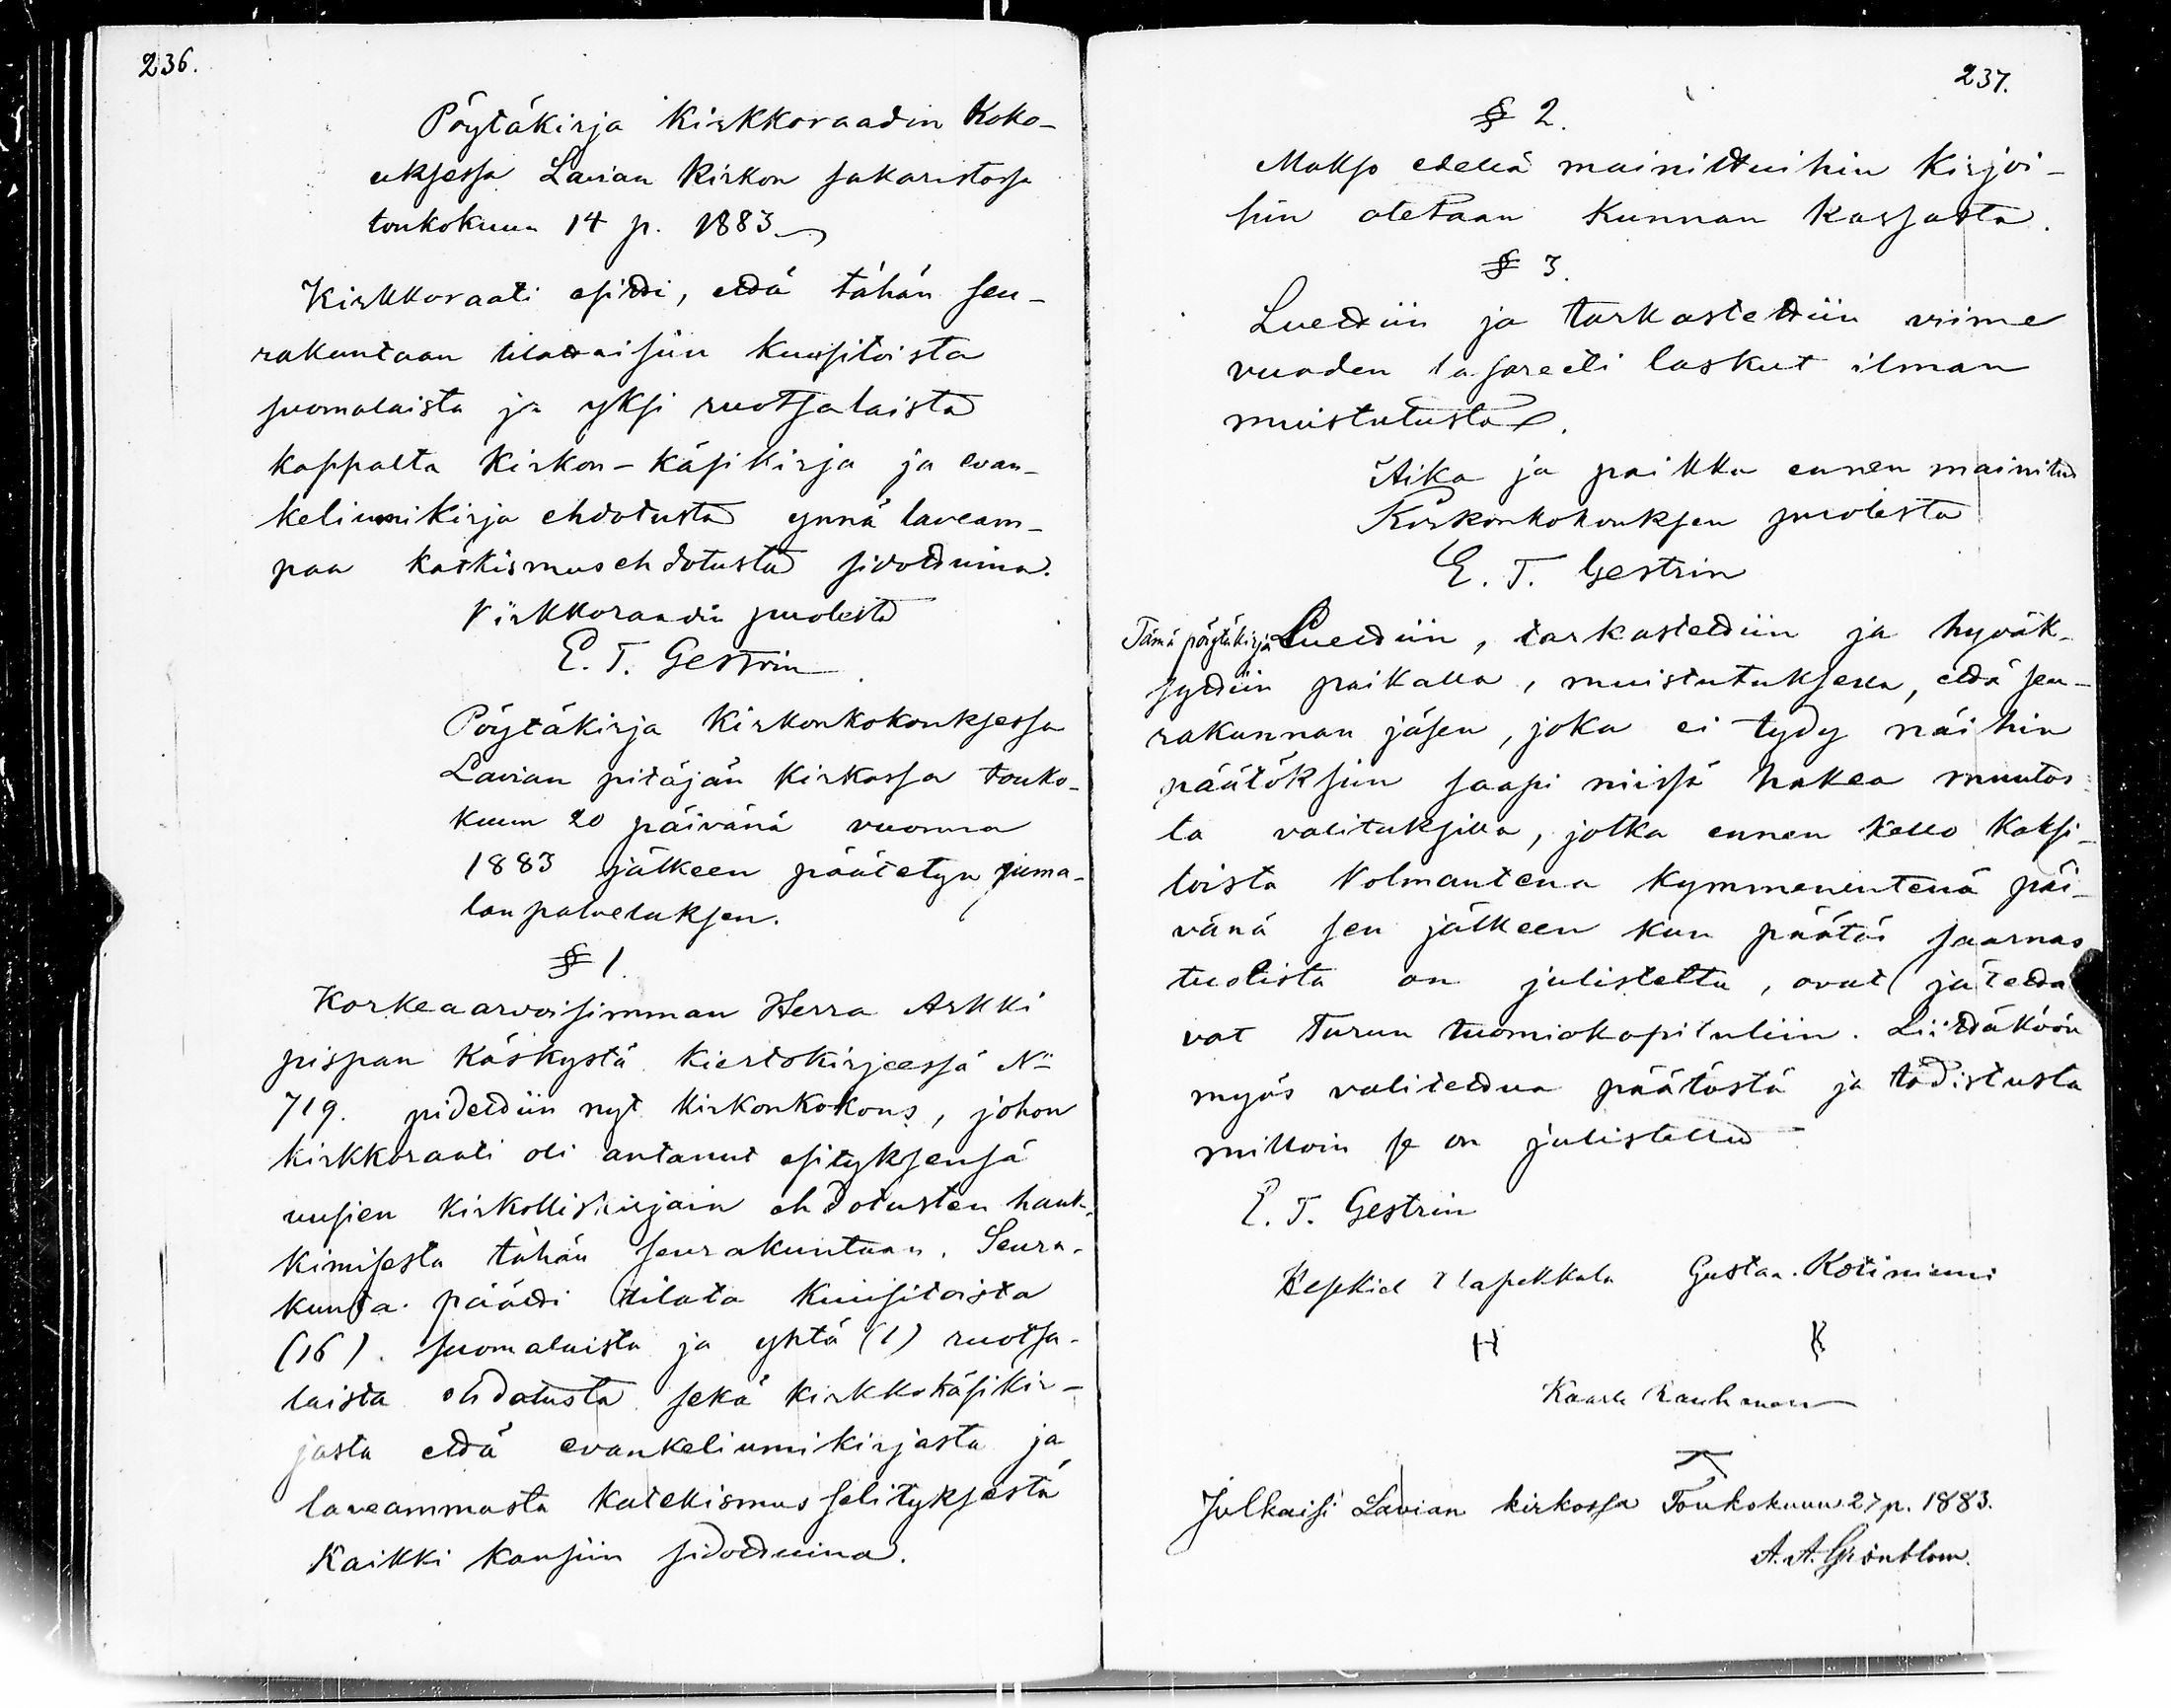 236.
Pöytäkirja Kirkkoraadin Koko-
uksessa Lavian Kirkon sakaristossa
toukokuun 14 p. 1883
Kirkkoraati esitti, että tähän seu-
rakuntaan tilattaisiin kuusitoista
suomalaista ja yksi ruotsalaista
kappaletta Kirkon-käsikirja ja evan-
keliumikirja ehdotusta ynnä laveam-
paa katkismusehdotusta sidottuina.
Kirkkoraadin puolesta
E. T. Gestrin
Pöytäkirja Kirkonkokouksessa
Lavian pitäjän Kirkossa touko-
kuun 20 päivänä vuonna
1883 jälkeen päätetyn juma-
lanpalveluksen.
§ 1.
Korkeaarvoisimman Herra Arkki
pispan Käskystä Kiertokirjeessä No
719. pidettiin nyt kirkonkokous, johon
kirkkoraati oli antanut esityksensä
uusien kirkolliskirjain ehdotusten hank-
kimisesta tähän seurakuntaan. Seura-
kunta päätti tilata kuusitoista
(16) suomalaista ja yhtä (1) ruotsa-
laista ehdotusta sekä kirkkokäsikir-
jasta että evankeliumikirjasta ja
laveammasta Katekismus selityksestä
Kaikki kansiin sidottuina.
237.
§ 2.
Makso edellä mainittuihin Kirjoi-
hin otetaan Kunnan Kassasta.
§ 3.
Luettiin ja tarkastettiin viime
vuoden lasareetti laskut ilman
muistutusta.
Aika ja paikka ennen mainitut
Kirkonkokouksen puolesta
E. T. Gestrin
Tämä pöytäkirja Luettiin, tarkastettiin ja hyväk-
syttiin paikalla, muistutuksella, että seu-
rakunnan jäsen, joka ei tydy näihin
päätöksiin saapi niissä hakea muutos-
ta valituksilla, jotka ennen kello kaksi-
toista Kolmantena kymmenentenä päi-
vänä sen jälkeen kun päätös saarnas
tuolista on julistettu, ovat jätettä
vat Turun tuomiokapituliin. Liittäköön
myös valitettua päätöstä ja todistusta
milloin se on julistettu
E. T. Gestrin
Hesekiel Gustaa Kotiniemi
H K
Kaarle Rauhanen
Julkaisi Lavian kirkossa Toukokuun 27 p. 1883.
A. A. Grönblom.